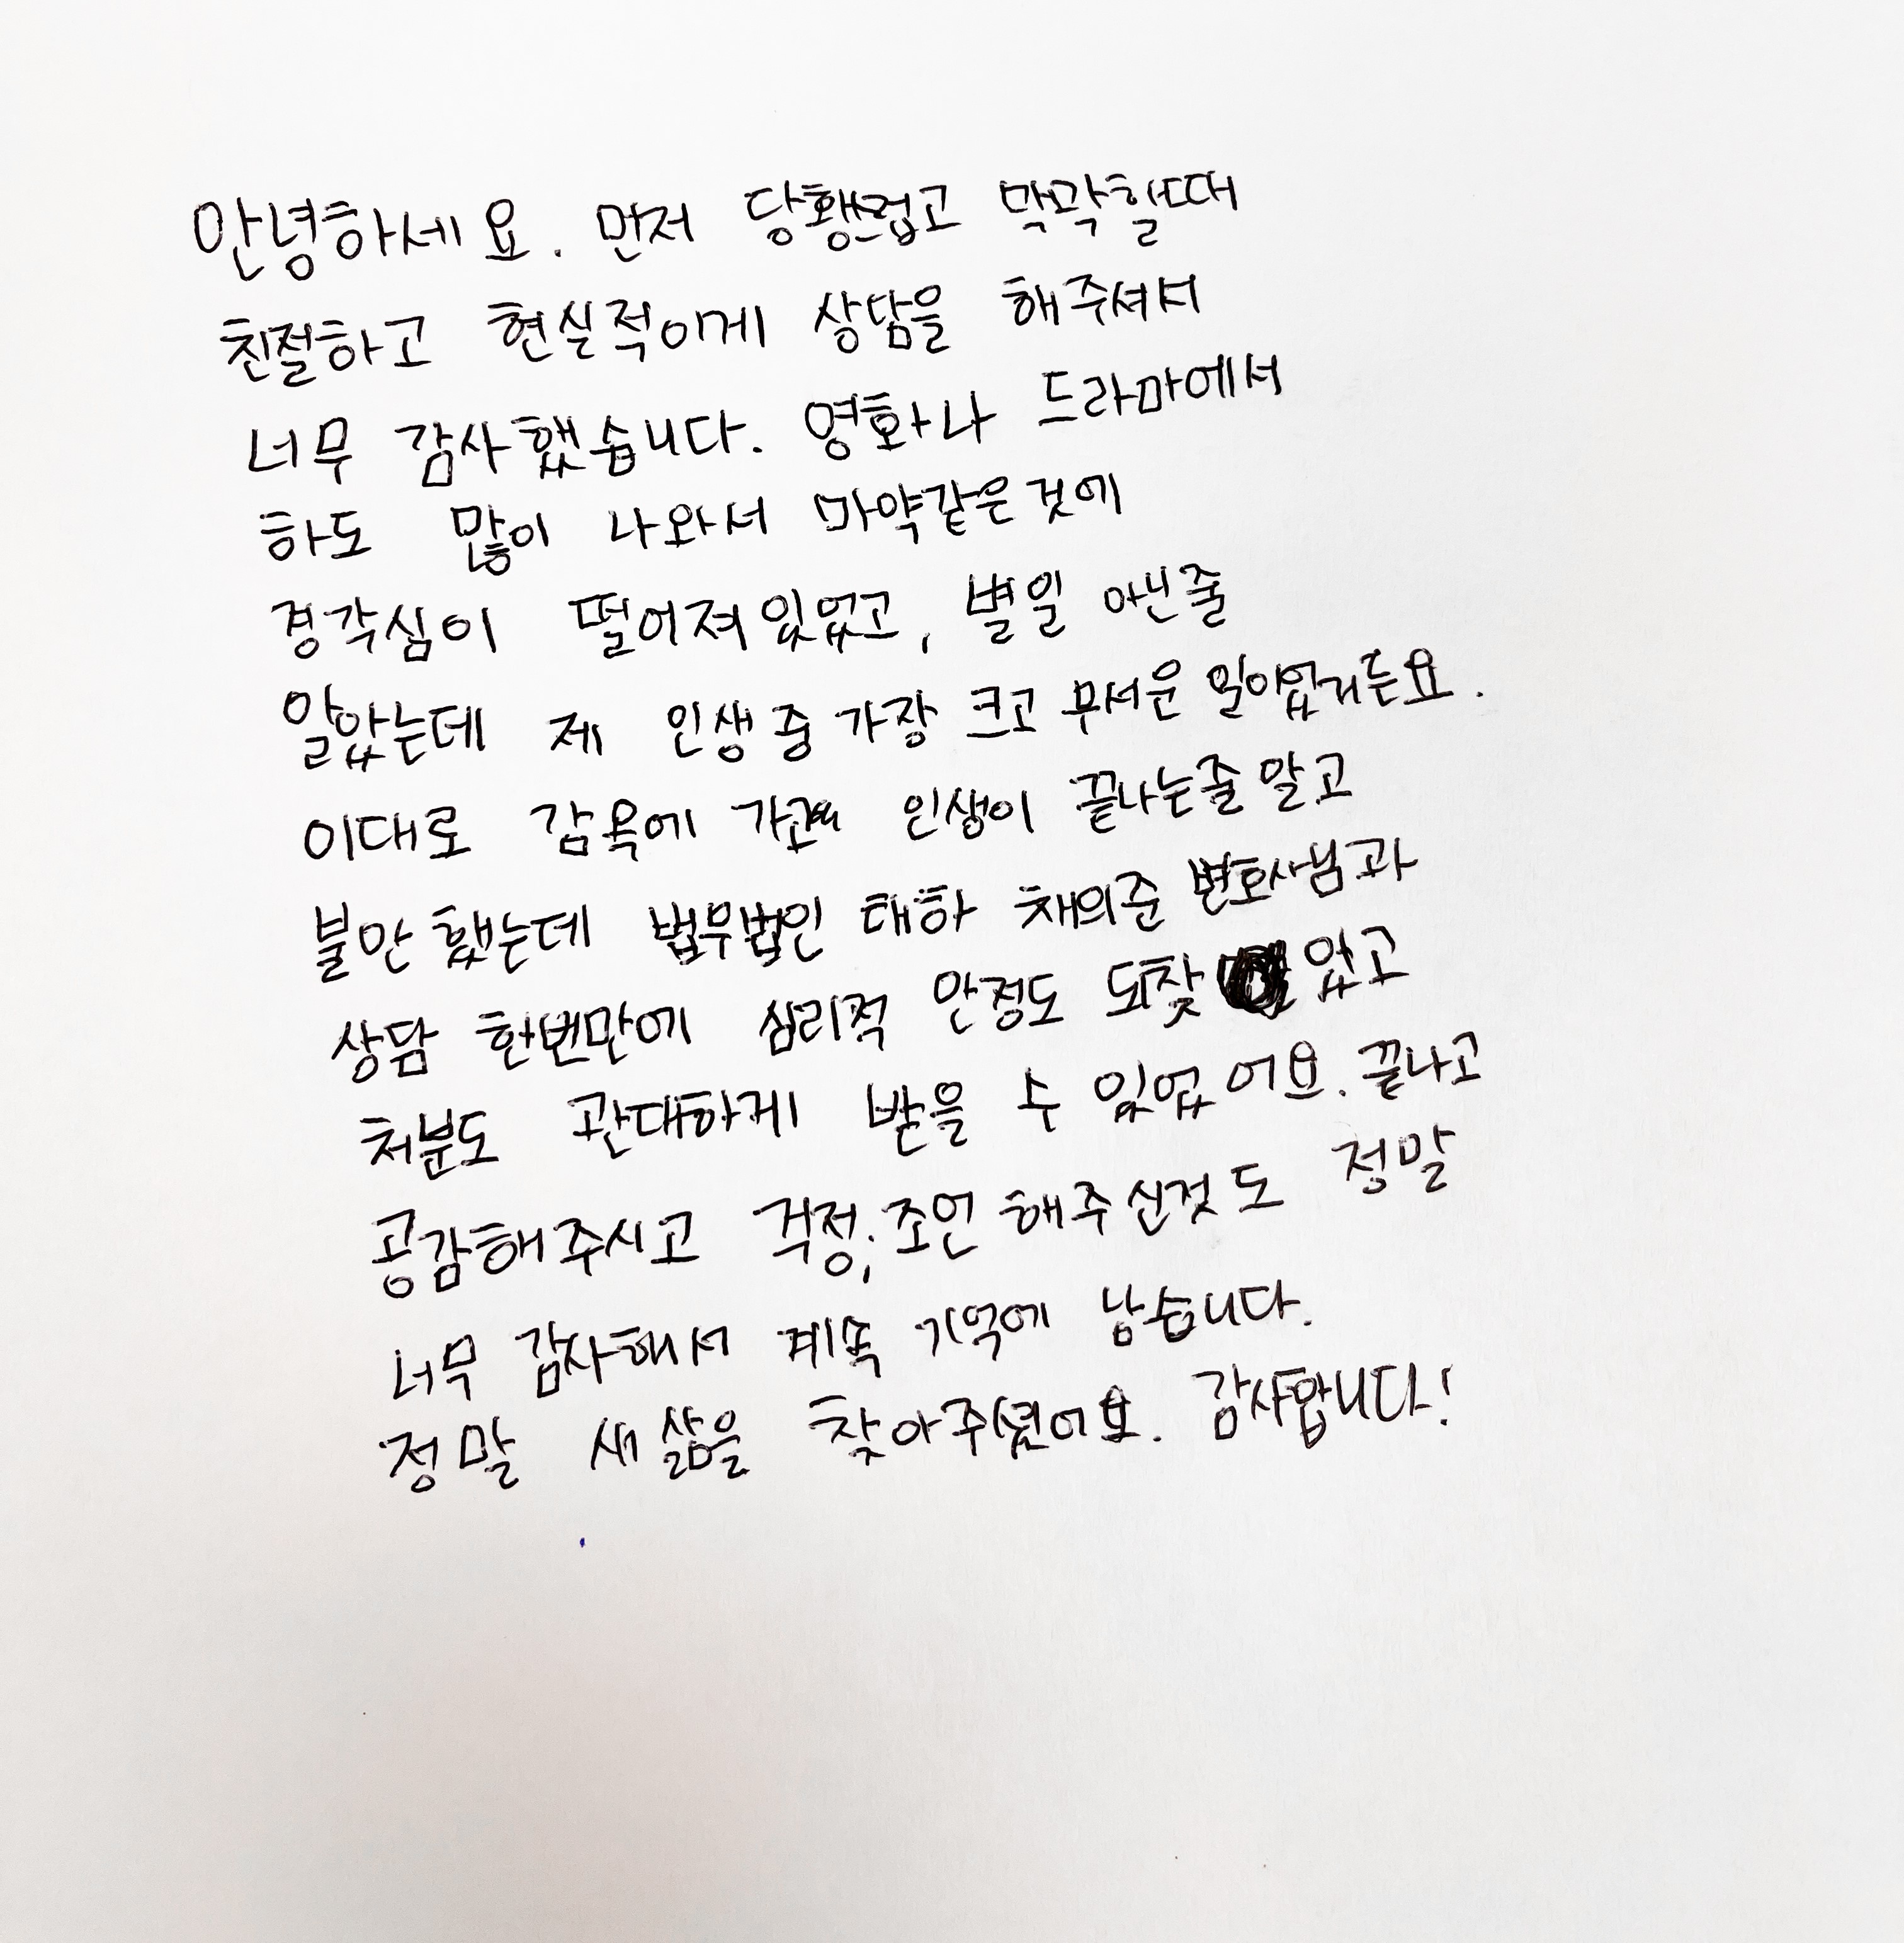 안녕하세요. 먼저 당황스럽고 막막할때
친절하고 현실적이게 상담을 해주셔서
너무 감사했습니다. 영화나 드라마에서
하도 많이 나와서 마약같은것에
경각심이 떨어져있었고, 별일 아닌줄
알았는데 제 인생중 가장 크고 무서운 일이었거든요.
이대로 감옥에 인생이 끝나는줄알고
불안했는데 법무법인 태하 채의준 변호사님과
상담 한번만에 심리적 안정도 되찾았고
처분도 관대하게 받을 수 있었어요. 끝나고
공감해주시고 걱정, 조언해주신것도 정말
너무 감사해서 계속 기억에 남습니다.
정말 새 삶을 찾아주셨어요. 감사합니다!